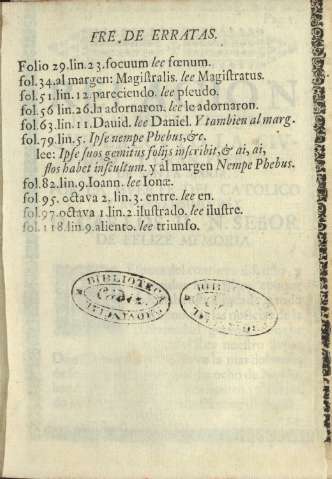 FRE, DE ERRATAS.
Folio 29.lin.23.focuum lee fœnum.
fol.34.al margen: Magistralis. lee Magistratus.
fol.51.lin.12.pareciendo. lee pseudo.
fol.56 lin.26.la adornaron. lee le adornaron.
fol.63.lin.11.Dauid. lee Daniel. Y tambien al marg.
fol.79.lin.5. Ipse nempe Phebus,&c.
lee: Ipse suos gemitus folijs inscribit,& ai, ai,
flos habet inscultum. y al margen Nempe Phebus.
fol.82.lin.9.Ioann. lee Ionæ.
fol 95. octava 2. lin.3. entre. lee en.
fol.97.octava 1.lin.2.ilustrado. lee ilustre.
fol.118.lin.9.aliento. lee triunfo.
BIBLIOTECA
PROVINCIAL
BIB
PROVINCIAL